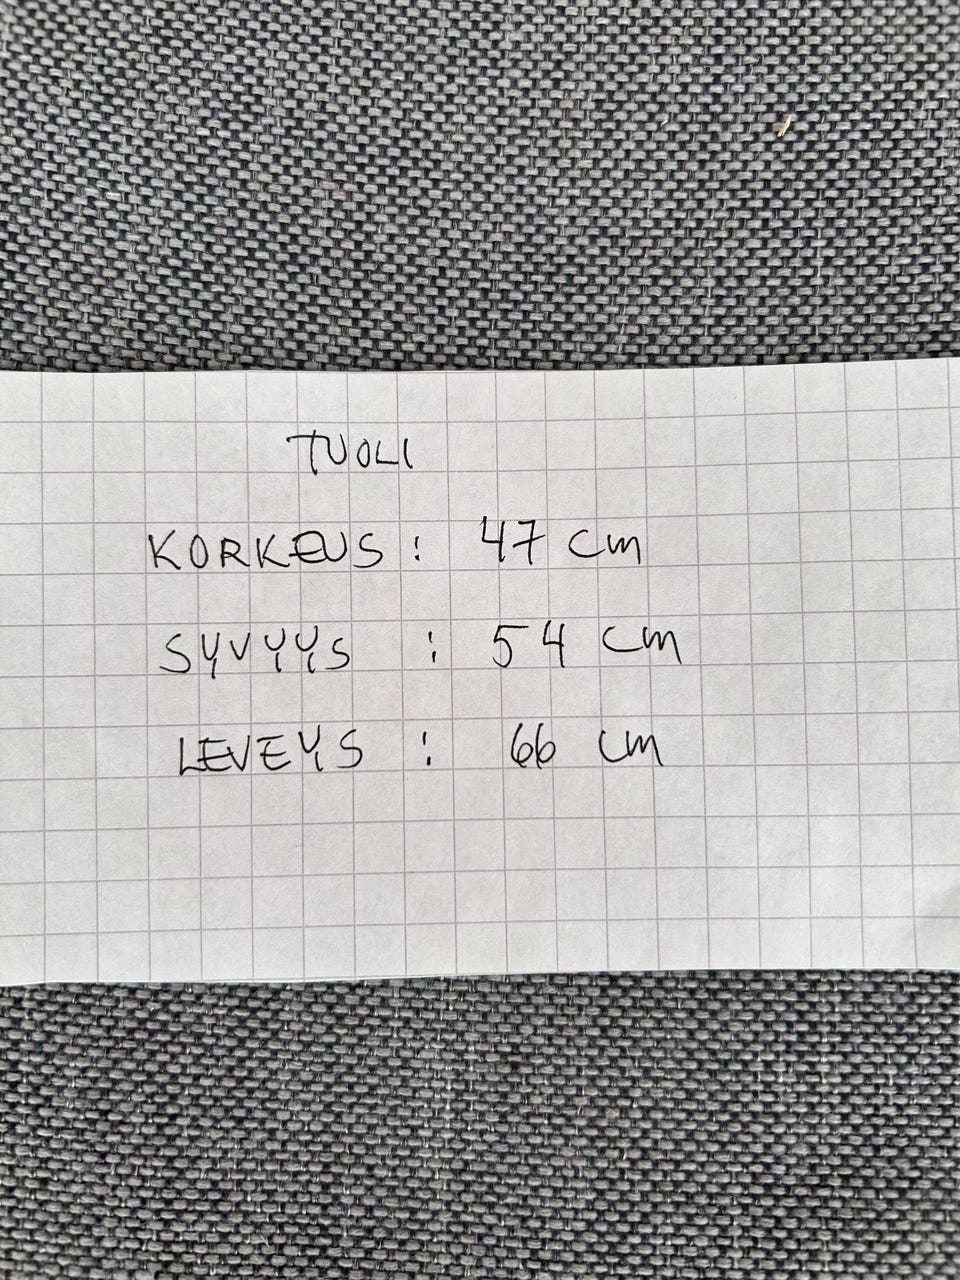 TUOLI
KORKEUS: 47 cm
SYVYYS : 54 cm
LEVEYS : 66 cm